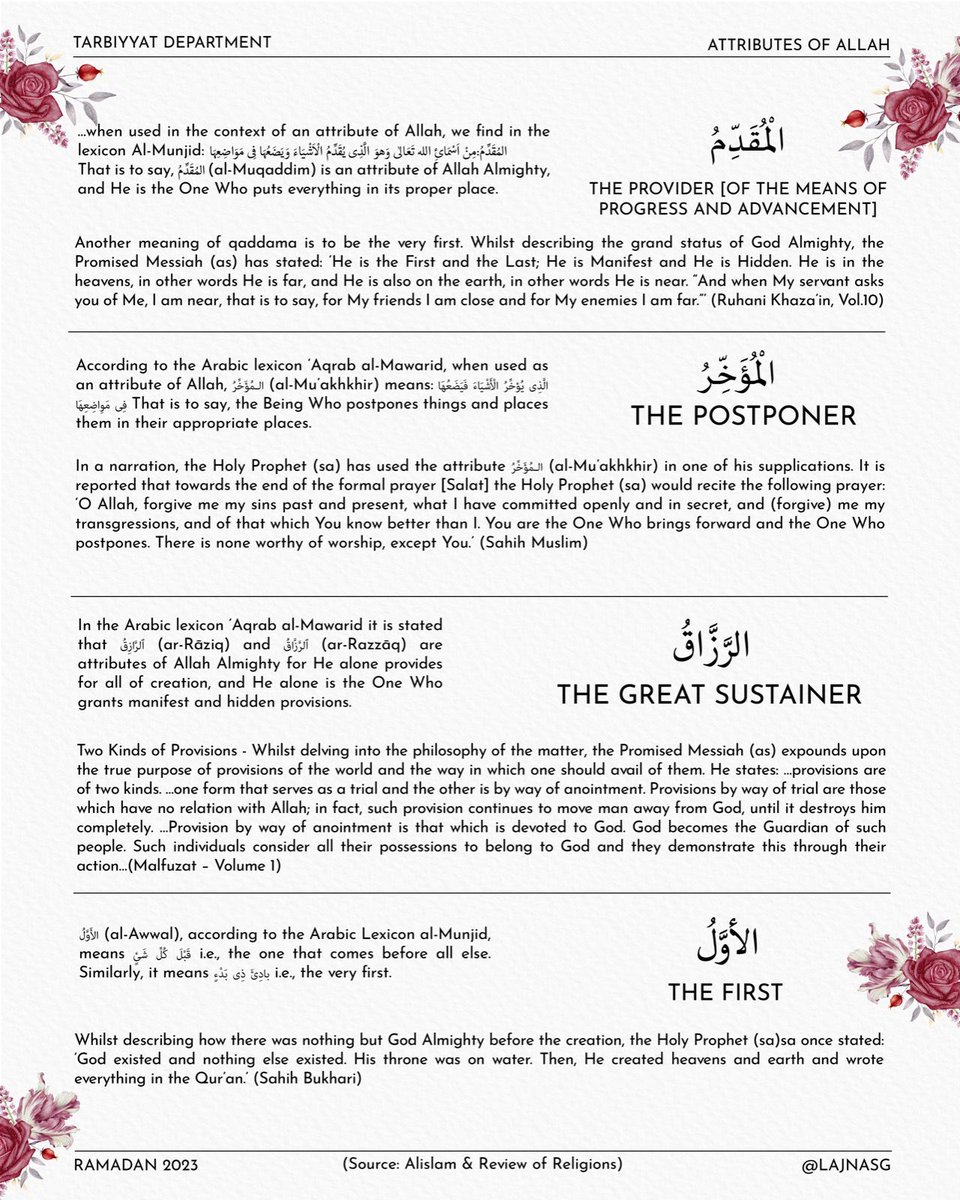 TARBIYYAT DEPARTMENT
ATTRIBUTES OF ALLAH
...when used in the context of an attribute of Allah, we find in the
lexicon Al-Munjid: المُقَدِّمُ:مِنْ اَسْمَائِ الله تَعَالَى وَهوَ الَّذِى يُقَدِّمُ الْاَشْيَاءَ وَيَضَعُهَا فِى مَوَاضِعِهَا
That is to say, المُقَدِّمُ (al-Muqaddim) is an attribute of Allah Almighty,
and He is the One Who puts everything in its proper place.
الْمُقَدِّمُ
THE PROVIDER [OF THE MEANS OF
PROGRESS AND ADVANCEMENT]
Another meaning of qaddama is to be the very first. Whilst describing the grand status of God Almighty, the
Promised Messiah (as) has stated: ‘He is the First and the Last; He is Manifest and He is Hidden. He is in the
heavens, in other words He is far, and He is also on the earth, in other words He is near. “And when My servant asks
you of Me, I am near, that is to say, for My friends I am close and for My enemies I am far.”’ (Ruhani Khaza’in, Vol.10)
According to the Arabic lexicon ‘Aqrab al-Mawarid, when used as
an attribute of Allah, الـمُؤَخِّرُ (al-Mu’akhkhir) means: الَّذِى يُؤخِّرُ الْاَشْيَاءَ فَيَضَعُهَا
فِى مَوِاضِعِهَا That is to say, the Being Who postpones things and places
them in their appropriate places.
الْمُؤَخِّرُ
THE POSTPONER
In a narration, the Holy Prophet (sa) has used the attribute الـمُؤَخِّرُ (al-Mu’akhkhir) in one of his supplications. It is
reported that towards the end of the formal prayer [Salat] the Holy Prophet (sa) would recite the following prayer:
‘O Allah, forgive me my sins past and present, what I have committed openly and in secret, and (forgive) me my
transgressions, and of that which You know better than I. You are the One Who brings forward and the One Who
postpones. There is none worthy of worship, except You.’ (Sahih Muslim)
In the Arabic lexicon ‘Aqrab al-Mawarid it is stated
that اَلرَّازِقُ (ar-Rāziq) and اَلرَّزَّاقُ (ar-Razzāq) are
attributes of Allah Almighty for He alone provides
for all of creation, and He alone is the One Who
grants manifest and hidden provisions.
الرَّزَّاقُ
THE GREAT SUSTAINER
Two Kinds of Provisions - Whilst delving into the philosophy of the matter, the Promised Messiah (as) expounds upon
the true purpose of provisions of the world and the way in which one should avail of them. He states: ...provisions are
of two kinds. ...one form that serves as a trial and the other is by way of anointment. Provisions by way of trial are those
which have no relation with Allah; in fact, such provision continues to move man away from God, until it destroys him
completely. ...Provision by way of anointment is that which is devoted to God. God becomes the Guardian of such
people. Such individuals consider all their possessions to belong to God and they demonstrate this through their
action...(Malfuzat – Volume 1)
الأَوَّلُ (al-Awwal), according to the Arabic Lexicon al-Munjid,
means قَبْلَ كُلِّ شَئٍ i.e., the one that comes before all else.
Similarly, it means بادِئَ ذِى بَدْءٍ i.e., the very first.
الأوَّلُ
THE FIRST
Whilst describing how there was nothing but God Almighty before the creation, the Holy Prophet (sa)sa once stated:
‘God existed and nothing else existed. His throne was on water. Then, He created heavens and earth and wrote
everything in the Qur’an.’ (Sahih Bukhari)
RAMADAN 2023
(Source: Alislam & Review of Religions)
@LAJNASG